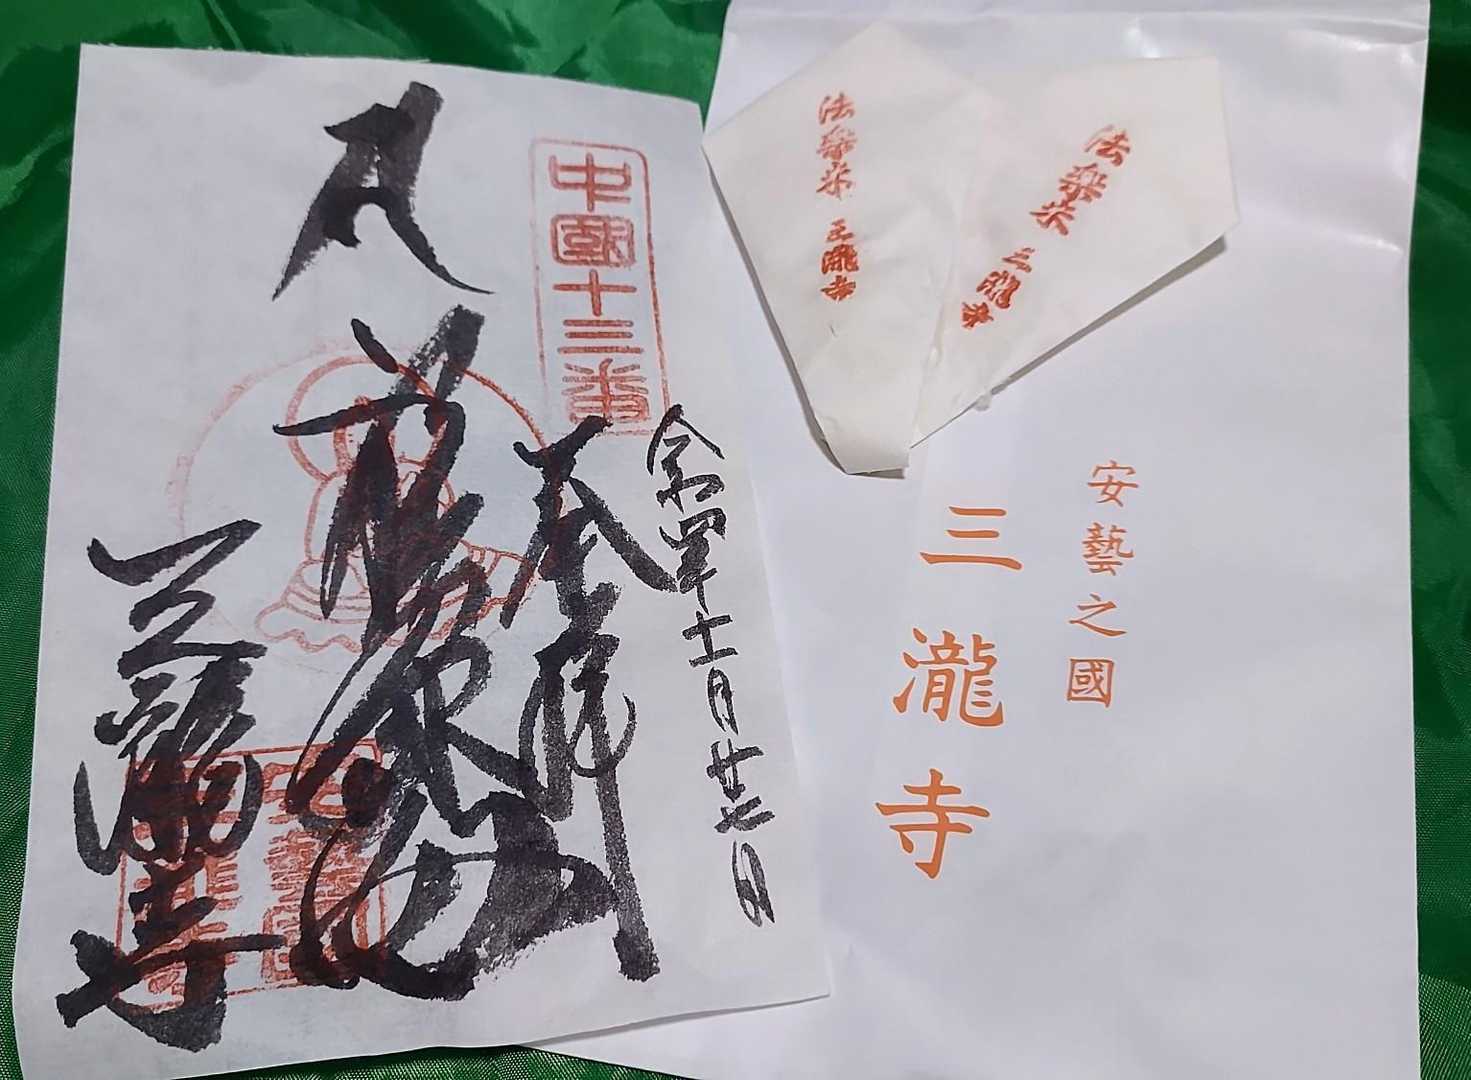 中國十三番
令和四年十一月廿七日
奉拝
三瀧寺
法楽米 三瀧寺
法楽米 三瀧寺
安藝之國
三瀧寺